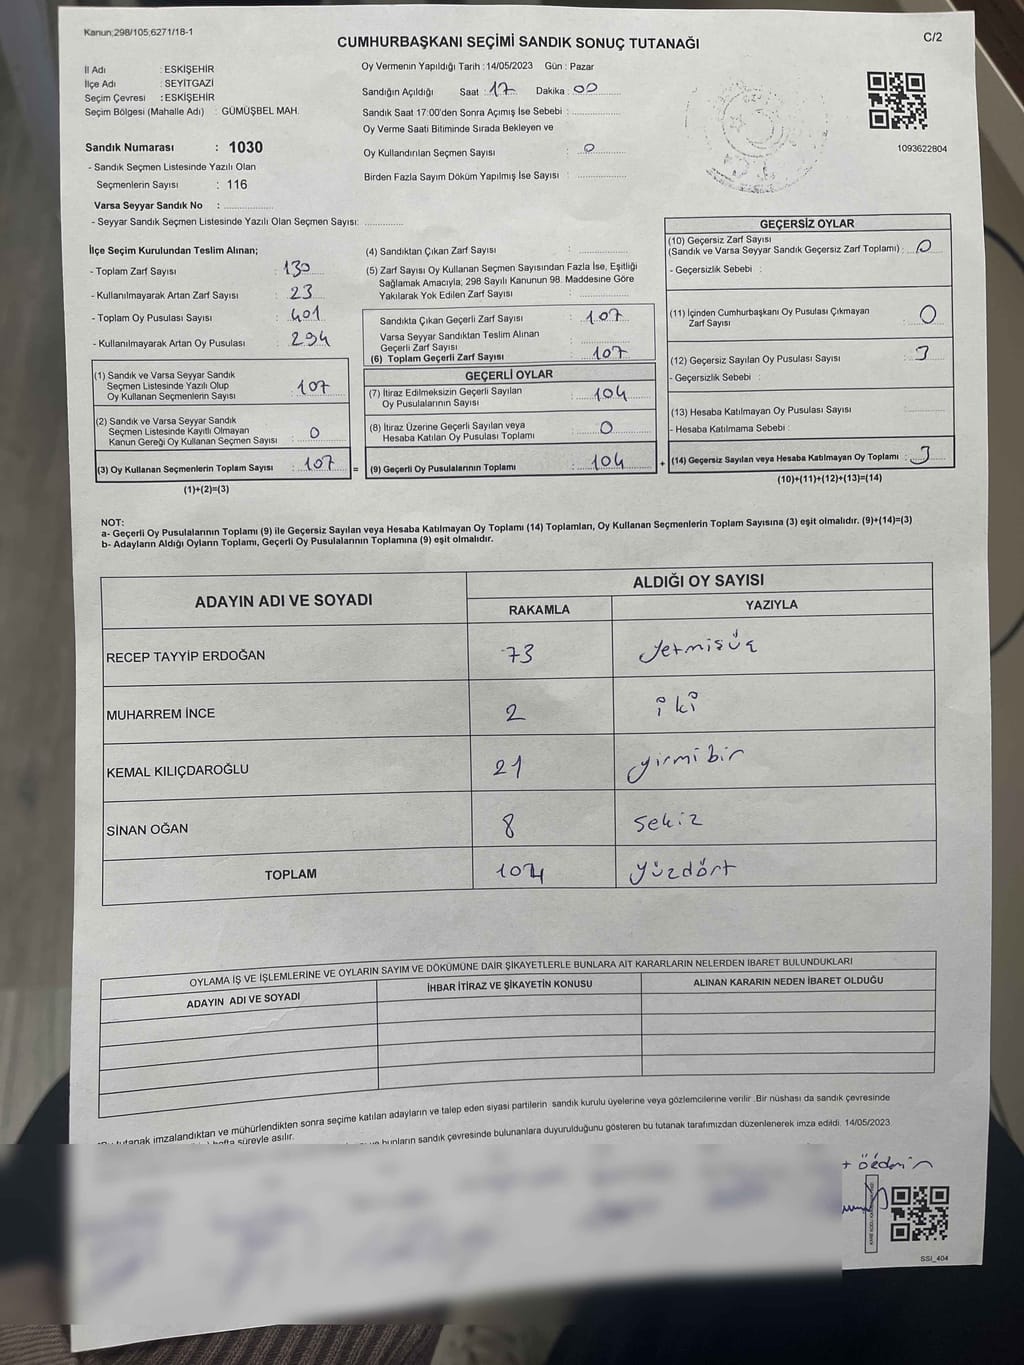 Kanun;298/105,6271/18-1
CUMHURBAŞKANI SEÇİMİ SANDIK SONUÇ TUTANAĞI
C/2
İl Adı : ESKİŞEHİR
İlçe Adı : SEYİTGAZİ
Seçim Çevresi : ESKİŞEHİR
Seçim Bölgesi (Mahalle Adı) : GÜMÜŞBEL MAH.
Sandık Numarası : 1030
- Sandık Seçmen Listesinde Yazılı Olan
Seçmenlerin Sayısı : 116
Varsa Seyyar Sandık No :
- Seyyar Sandık Seçmen Listesinde Yazılı Olan Seçmen Sayısı:
Oy Vermenin Yapıldığı Tarih : 14/05/2023 Gün : Pazar
Sandığın Açıldığı Saat : 17 Dakika : 00
Sandık Saat 17:00'den Sonra Açımış İse Sebebi :
Oy Verme Saati Bitiminde Sırada Bekleyen ve
Oy Kullandırılan Seçmen Sayısı : 0
Birden Fazla Sayım Döküm Yapılmış İse Sayısı :
1093622804
İlçe Seçim Kurulundan Teslim Alınan;
- Toplam Zarf Sayısı : 130
- Kullanılmayarak Artan Zarf Sayısı : 23
- Toplam Oy Pusulası Sayısı : 401
- Kullanılmayarak Artan Oy Pusulası : 294
(1) Sandık ve Varsa Seyyar Sandık
Seçmen Listesinde Yazılı Olup
Oy Kullanan Seçmenlerin Sayısı : 107
(2) Sandık ve Varsa Seyyar Sandık
Seçmen Listesinde Kayıtlı Olmayan
Kanun Gereği Oy Kullanan Seçmen Sayısı : 0
(3) Oy Kullanan Seçmenlerin Toplam Sayısı : 107
(1)+(2)=(3)
(4) Sandıktan Çıkan Zarf Sayısı :
(5) Zarf Sayısı Oy Kullanan Seçmen Sayısından Fazla İse, Eşitliği
Sağlamak Amacıyla; 298 Sayılı Kanunun 98. Maddesine Göre
Yakılarak Yok Edilen Zarf Sayısı :
Sandıkta Çıkan Geçerli Zarf Sayısı : 107
Varsa Seyyar Sandıktan Teslim Alınan
Geçerli Zarf Sayısı :
(6) Toplam Geçerli Zarf Sayısı : 107
GEÇERLİ OYLAR
(7) İtiraz Edilmeksizin Geçerli Sayılan
Oy Pusulalarının Sayısı : 104
(8) İtiraz Üzerine Geçerli Sayılan veya
Hesaba Katılan Oy Pusulası Toplamı : 0
= (9) Geçerli Oy Pusulalarının Toplamı : 104
GEÇERSİZ OYLAR
(10) Geçersiz Zarf Sayısı
(Sandık ve Varsa Seyyar Sandık Geçersiz Zarf Toplamı) : 0
- Geçersizlik Sebebi :
(11) İçinden Cumhurbaşkanı Oy Pusulası Çıkmayan
Zarf Sayısı : 0
(12) Geçersiz Sayılan Oy Pusulası Sayısı : 3
- Geçersizlik Sebebi :
(13) Hesaba Katılmayan Oy Pusulası Sayısı :
- Hesaba Katılmama Sebebi :
+ (14) Geçersiz Sayılan veya Hesaba Katılmayan Oy Toplamı : 3
(10)+(11)+(12)+(13)=(14)
NOT:
a- Geçerli Oy Pusulalarının Toplamı (9) ile Geçersiz Sayılan veya Hesaba Katılmayan Oy Toplamı (14) Toplamları, Oy Kullanan Seçmenlerin Toplam Sayısına (3) eşit olmalıdır. (9)+(14)=(3)
b- Adayların Aldığı Oyların Toplamı, Geçerli Oy Pusulalarının Toplamına (9) eşit olmalıdır.
ADAYIN ADI VE SOYADI
ALDIĞI OY SAYISI
RAKAMLA YAZIYLA
RECEP TAYYİP ERDOĞAN 73 yetmişüç
MUHARREM İNCE 2 iki
KEMAL KILIÇDAROĞLU 21 yirmibir
SİNAN OĞAN 8 sekiz
TOPLAM 104 yüzdört
OYLAMA İŞ VE İŞLEMLERİNE VE OYLARIN SAYIM VE DÖKÜMÜNE DAİR ŞİKAYETLERLE BUNLARA AİT KARARLARIN NELERDEN İBARET BULUNDUKLARI
ADAYIN ADI VE SOYADI İHBAR İTİRAZ VE ŞİKAYETİN KONUSU ALINAN KARARIN NEDEN İBARET OLDUĞU
tutanak imzalandıktan ve mühürlendikten sonra seçime katılan adayların ve talep eden siyasi partilerin sandık kurulu üyelerine veya gözlemcilerine verilir. Bir nüshası da sandık çevresinde
hafta süreyle asılır.
bunların sandık çevresinde bulunanlara duyurulduğunu gösteren bu tutanak tarafımızdan düzenlenerek imza edildi. 14/05/2023
SSİ_404